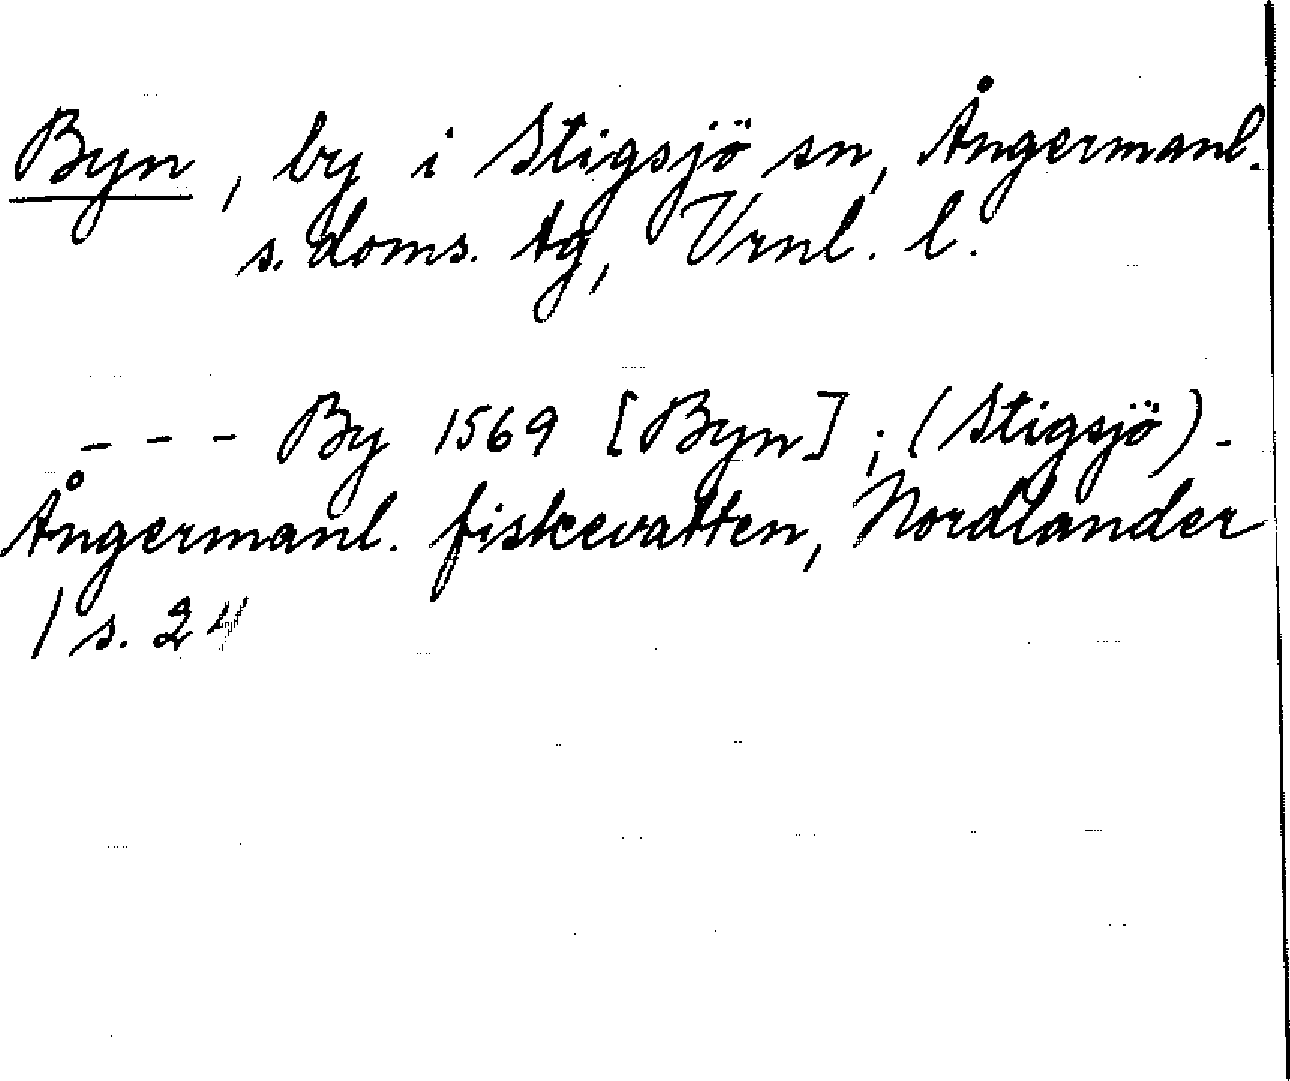 Byn, by i Stigsjö sn, Ångermanl.
s. doms. tg, Vrnl. l.
- - - By 1569 [Byn]; (Stigsjö) -
Ångermanl. fiskevatten, Nordlander
1 s. 24